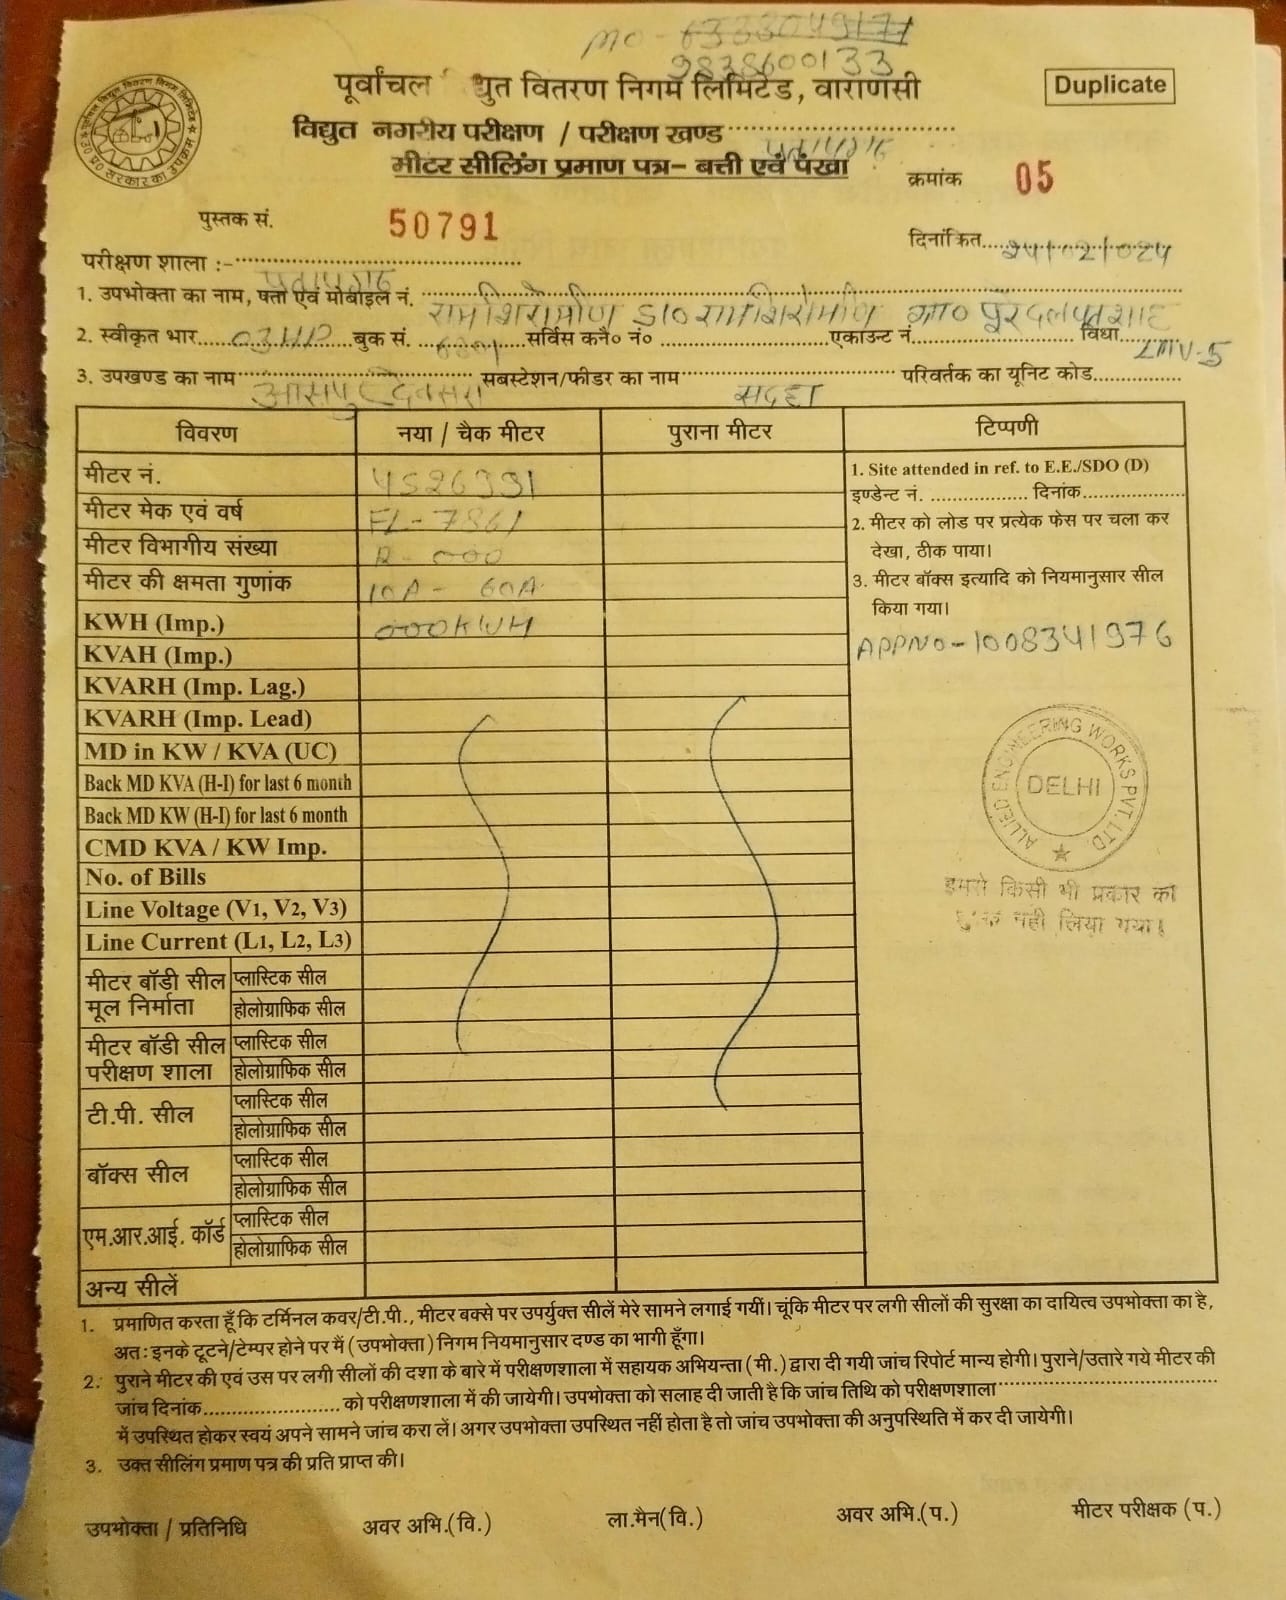 MO - 6333049171
9838600133
पूर्वांचल द्युत वितरण निगम लिमिटेड, वाराणसी
Duplicate
विद्युत नगरीय परीक्षण / परीक्षण खण्ड
मीटर सीलिंग प्रमाण पत्र– बत्ती एवं पंखा
क्रमांक 05
पुस्तक सं. 50791
दिनांकित 24/02/024
परीक्षण शाला :-
1. उपभोक्ता का नाम, पता एवं मोबाइल नं. रामशिरोमणि S/O रामशिरोमणि ग्रा० पूरदलपतशाह
2. स्वीकृत भार 03HP बुक सं. सर्विस कनै० नं० एकाउन्ट नं. विधा LMV-5
3. उपखण्ड का नाम आसपुर देवसरा सबस्टेशन/फीडर का नाम सदहा परिवर्तक का यूनिट कोड
विवरण नया / चैक मीटर पुराना मीटर टिप्पणी
मीटर नं. 4526991
मीटर मेक एवं वर्ष FL-7861
मीटर विभागीय संख्या R-000
मीटर की क्षमता गुणांक 10A- 60A
KWH (Imp.) 000KWH
KVAH (Imp.)
KVARH (Imp. Lag.)
KVARH (Imp. Lead)
MD in KW / KVA (UC)
Back MD KVA (H-I) for last 6 month
Back MD KW (H-I) for last 6 month
CMD KVA / KW Imp.
No. of Bills
Line Voltage (V1, V2, V3)
Line Current (L1, L2, L3)
मीटर बॉडी सील मूल निर्माता प्लास्टिक सील
होलोग्राफिक सील
मीटर बॉडी सील परीक्षण शाला प्लास्टिक सील
होलोग्राफिक सील
टी.पी. सील प्लास्टिक सील
होलोग्राफिक सील
बॉक्स सील प्लास्टिक सील
होलोग्राफिक सील
एम.आर.आई. कॉर्ड प्लास्टिक सील
होलोग्राफिक सील
अन्य सीलें
1. Site attended in ref. to E.E./SDO (D)
इण्डेन्ट नं. दिनांक
2. मीटर को लोड पर प्रत्येक फेस पर चला कर
देखा, ठीक पाया।
3. मीटर बॉक्स इत्यादि को नियमानुसार सील
किया गया।
APPNO-1008341976
ALLIED ENGINEERING WORKS PVT. LTD.
DELHI
इमसे किसी भी प्रकार का
शुल्क नही लिया गया।
1. प्रमाणित करता हूँ कि टर्मिनल कवर/टी.पी., मीटर बक्से पर उपर्युक्त सीलें मेरे सामने लगाई गयीं। चूंकि मीटर पर लगी सीलों की सुरक्षा का दायित्व उपभोक्ता का है,
अत: इनके टूटने/टेम्पर होने पर मैं (उपभोक्ता) निगम नियमानुसार दण्ड का भागी हूँगा।
2. पुराने मीटर की एवं उस पर लगी सीलों की दशा के बारे में परीक्षणशाला में सहायक अभियन्ता (मी.) द्वारा दी गयी जांच रिपोर्ट मान्य होगी। पुराने/उतारे गये मीटर की
जांच दिनांक को परीक्षणशाला में की जायेगी। उपभोक्ता को सलाह दी जाती है कि जांच तिथि को परीक्षणशाला
में उपस्थित होकर स्वयं अपने सामने जांच करा लें। अगर उपभोक्ता उपस्थित नहीं होता है तो जांच उपभोक्ता की अनुपस्थिति में कर दी जायेगी।
3. उक्त सीलिंग प्रमाण पत्र की प्रति प्राप्त की।
उपभोक्ता / प्रतिनिधि अवर अभि.(वि.) ला.मैन(वि.) अवर अभि.(प.) मीटर परीक्षक (प.)